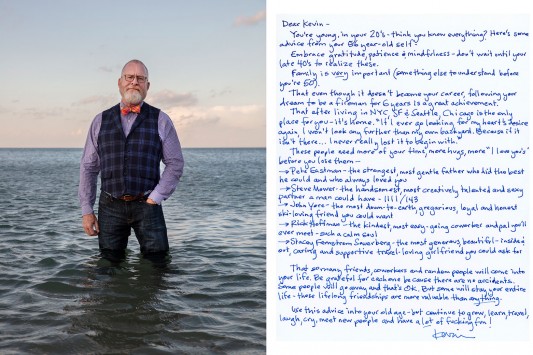 Dear Kevin -
You're young, in your 20's - think you know everything? Here's some
advice from your 56 year-old self -
Embrace gratitude, patience & mindfulness - don't wait until your
late 40's to realize these.
Family is very important (something else to understand before
you're 50).
That even though it doesn't become your career, following your
dream to be a fireman for 6 years is a great achievement.
That after living in NYC, SF & Seattle, Chicago is the only
place for you - it's home. "If I ever go looking for my heart's desire
again, I won't look any further than my own backyard. Because if it
isn't there... I never really lost it to begin with."
These people need more of your time, more hugs, more "I love you's"
before you lose them -
→ Pete Eastman - the strongest, most gentle father who did the best
he could and who always loved you
→ Steve Mower - the handsomest, most creatively talented and sexy
partner a man could have - 1111 / 143
→ John Vore - the most down-to-earth, gregarious, loyal and honest
ski-loving friend you could want
→ Rick Hoffman - the kindest, most easy-going coworker and pal you'll
ever meet - such a calm soul
→ Stacey Fernstrom Sauerberg - the most generous, beautiful - inside &
out, caring and supportive travel-loving girlfriend you could ask for
That so many friends, coworkers and random people will come into
your life. Be grateful for each one because there are no accidents.
Some people will go away and that's OK. But some will stay your entire
life - those lifelong friendships are more valuable than anything.
Use this advice into your old age - but continue to grow, learn, travel,
laugh, cry, meet new people and have a lot of fucking fun!
Kevin